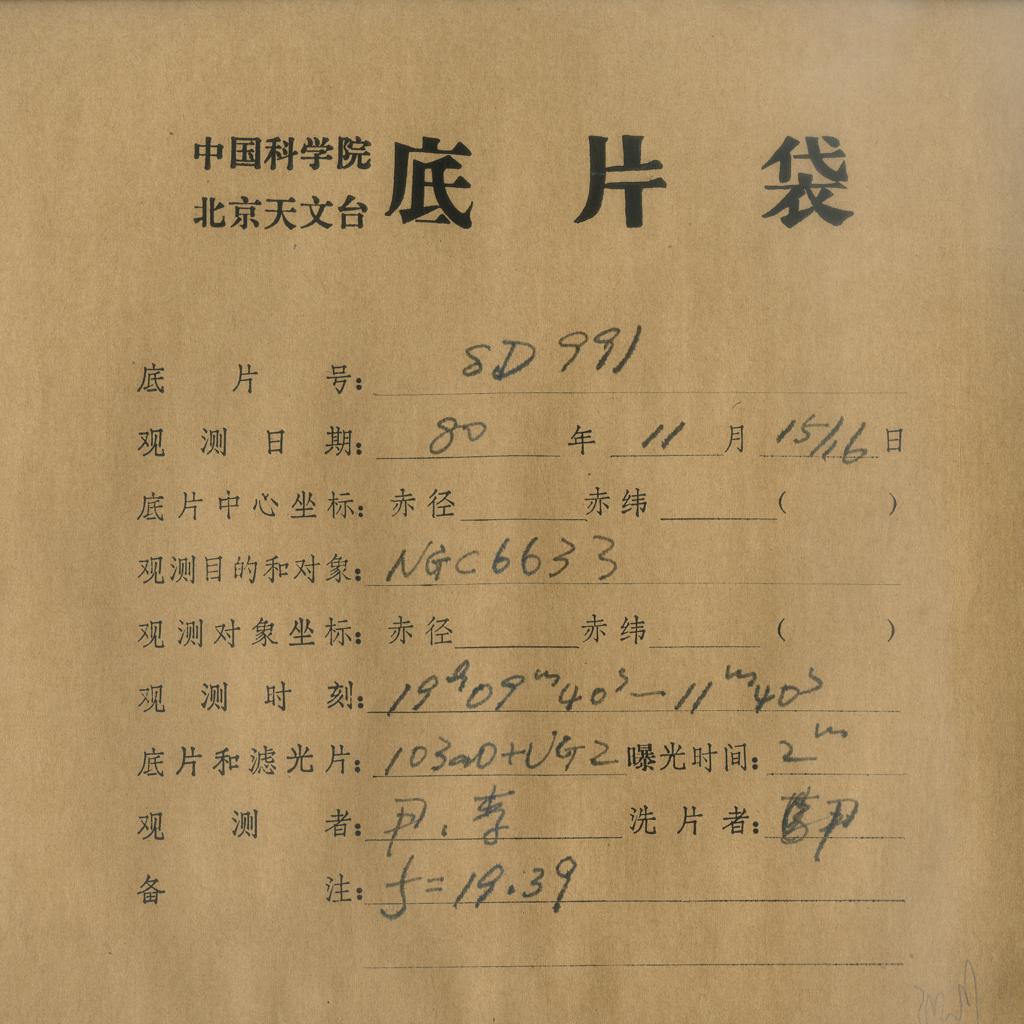 中国科学院
北京天文台
底片袋
底片号： SD 991
观测日期： 80 年 11 月 15/16 日
底片中心坐标： 赤径 赤纬 ( )
观测目的和对象： NGC 6633
观测对象坐标： 赤径 赤纬 ( )
观测时刻： 19h09m40s — 11m40s
底片和滤光片： 103aO+UG2 曝光时间： 2m
观测者： 尹、李 洗片者： 尹
备注： f=19.39